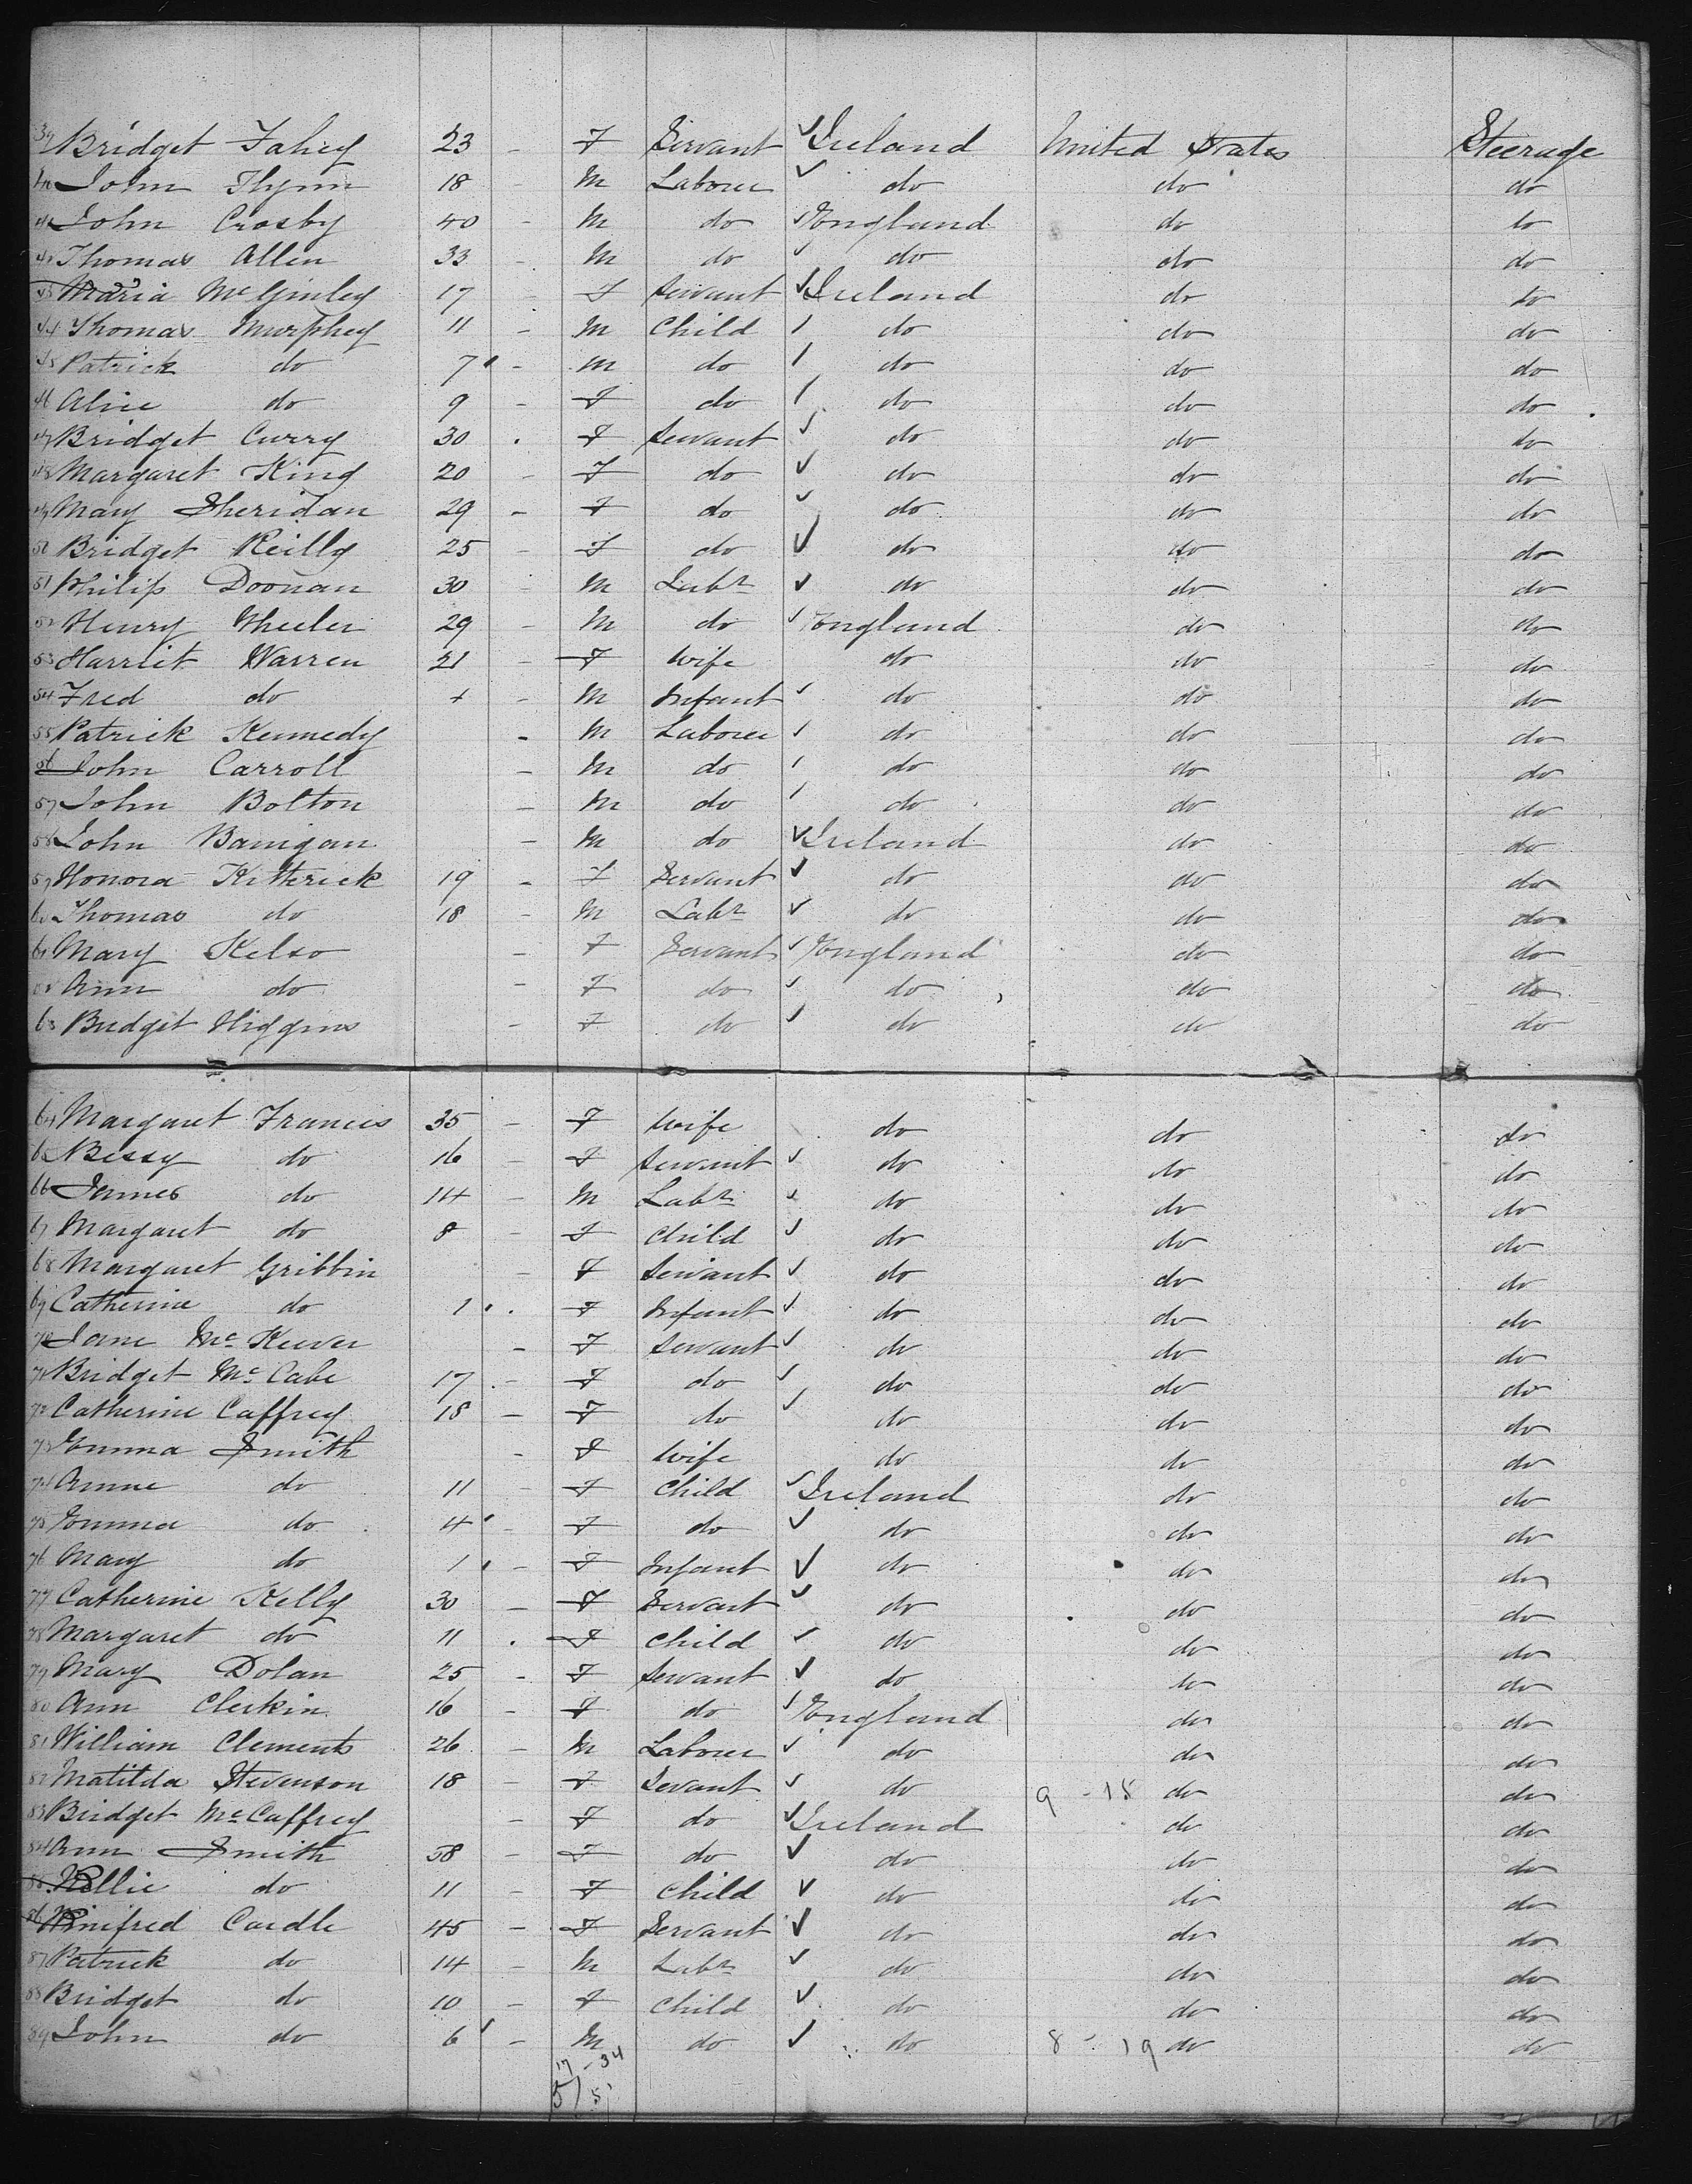 39 Bridget Fahey 23 - F Servant ✓ Ireland United States Steerage
40 John Flynn 18 - M Laborer ✓ do do do
41 John Crosby 40 - M do ✓ England do do
42 Thomas Allen 33 - M do ✓ do do do
43 Maria McGinley 17 - F Servant ✓ Ireland do do
44 Thomas Murphey 11 - M Child / do do do
45 Patrick do 7 - M do / do do do
46 Alice do 9 - F do / do do do
47 Bridget Curry 30 . F Servant ✓ do do do
48 Margaret King 20 - F do ✓ do do do
49 Mary Sheridan 29 - F do ✓ do do do
50 Bridget Reilly 25 - F do ✓ do do do
51 Philip Doonan 30 - M Labr ✓ do do do
52 Henry Wheeler 29 - M do ✓ England do do
53 Harriet Warren 21 - F Wife do do do
54 Fred do + - M Infant ✓ do do do
55 Patrick Kennedy - M Laborer ✓ do do do
56 John Carroll - M do / do do do
57 John Bolton - M do / do do do
58 John Banigan - M do ✓ Ireland do do
59 Honora Kitterick 19 - F Servant ✓ do do do
60 Thomas do 18 - M Labr ✓ do do do
61 Mary Kelso - F Servant ✓ England do do
62 Ann do - F do ✓ do do do
63 Bridget Higgins - F do ✓ do do do
64 Margaret Francis 35 - F Wife do do do
65 Bessy do 16 - F Servant ✓ do do do
66 James do 14 - M Labr ✓ do do do
67 Margaret do 8 - F Child ✓ do do do
68 Margaret Gribbin - F Servant ✓ do do do
69 Catherine do 1 . F Infant ✓ do do do
70 Jane McKeever - F Servant ✓ do do do
71 Bridget McCabe 17 - F do ✓ do do do
72 Catherine Caffrey 18 - F do ✓ do do do
73 Emma Smith - F Wife do do do
74 Anne do 11 - F Child ✓ Ireland do do
75 Emma do 4 - F do ✓ do do do
76 Mary do 1 - F Infant ✓ do do do
77 Catherine Kelly 30 - F Servant ✓ do do do
78 Margaret do 11 . F Child ✓ do do do
79 Mary Dolan 25 - F Servant ✓ do do do
80 Ann Clerkin 16 - F do ✓ England do do
81 William Clements 26 - M Laborer ✓ do do do
82 Matilda Stevenson 18 - F Servant ✓ do 9 - 15 do do
83 Bridget McCaffrey - F do ✓ Ireland do do
84 Ann Smith 58 - F do ✓ do do do
85 Nellie do 11 - F Child ✓ do do do
86 Winifred Cardle 45 - F Servant ✓ do do do
87 Patrick do 14 - M Labr ✓ do do do
88 Bridget do 10 - F Child ✓ do do do
89 John do 6 - M do ✓ do 8 - 19 do do
17 - 34
51